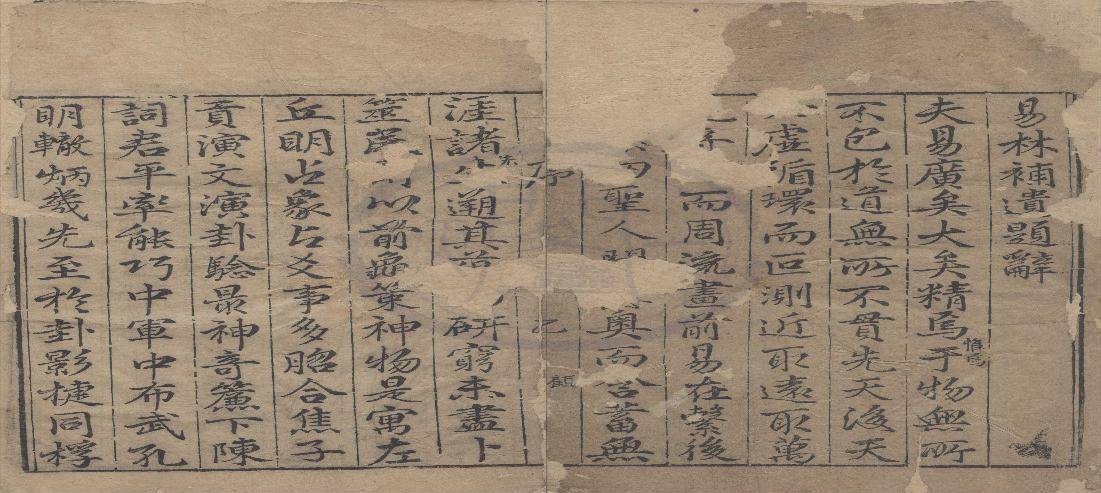 易林補遺題辭
夫易廣矣大矣精焉乎物無所
不包於道無所不貫先天後天
虛循環而叵測近取遠取萬
而周流畫前易在繫後
聖人奧而含蓄無
序 乙
涯諸遡其研窮未盡卜
筮以前龜策神物是寓左
丘明占象占爻事多脗合焦子
賁演文演卦驗最神奇簾下陳
詞君平率能巧中軍中布武孔
明轍炳幾先至於卦影捷同桴